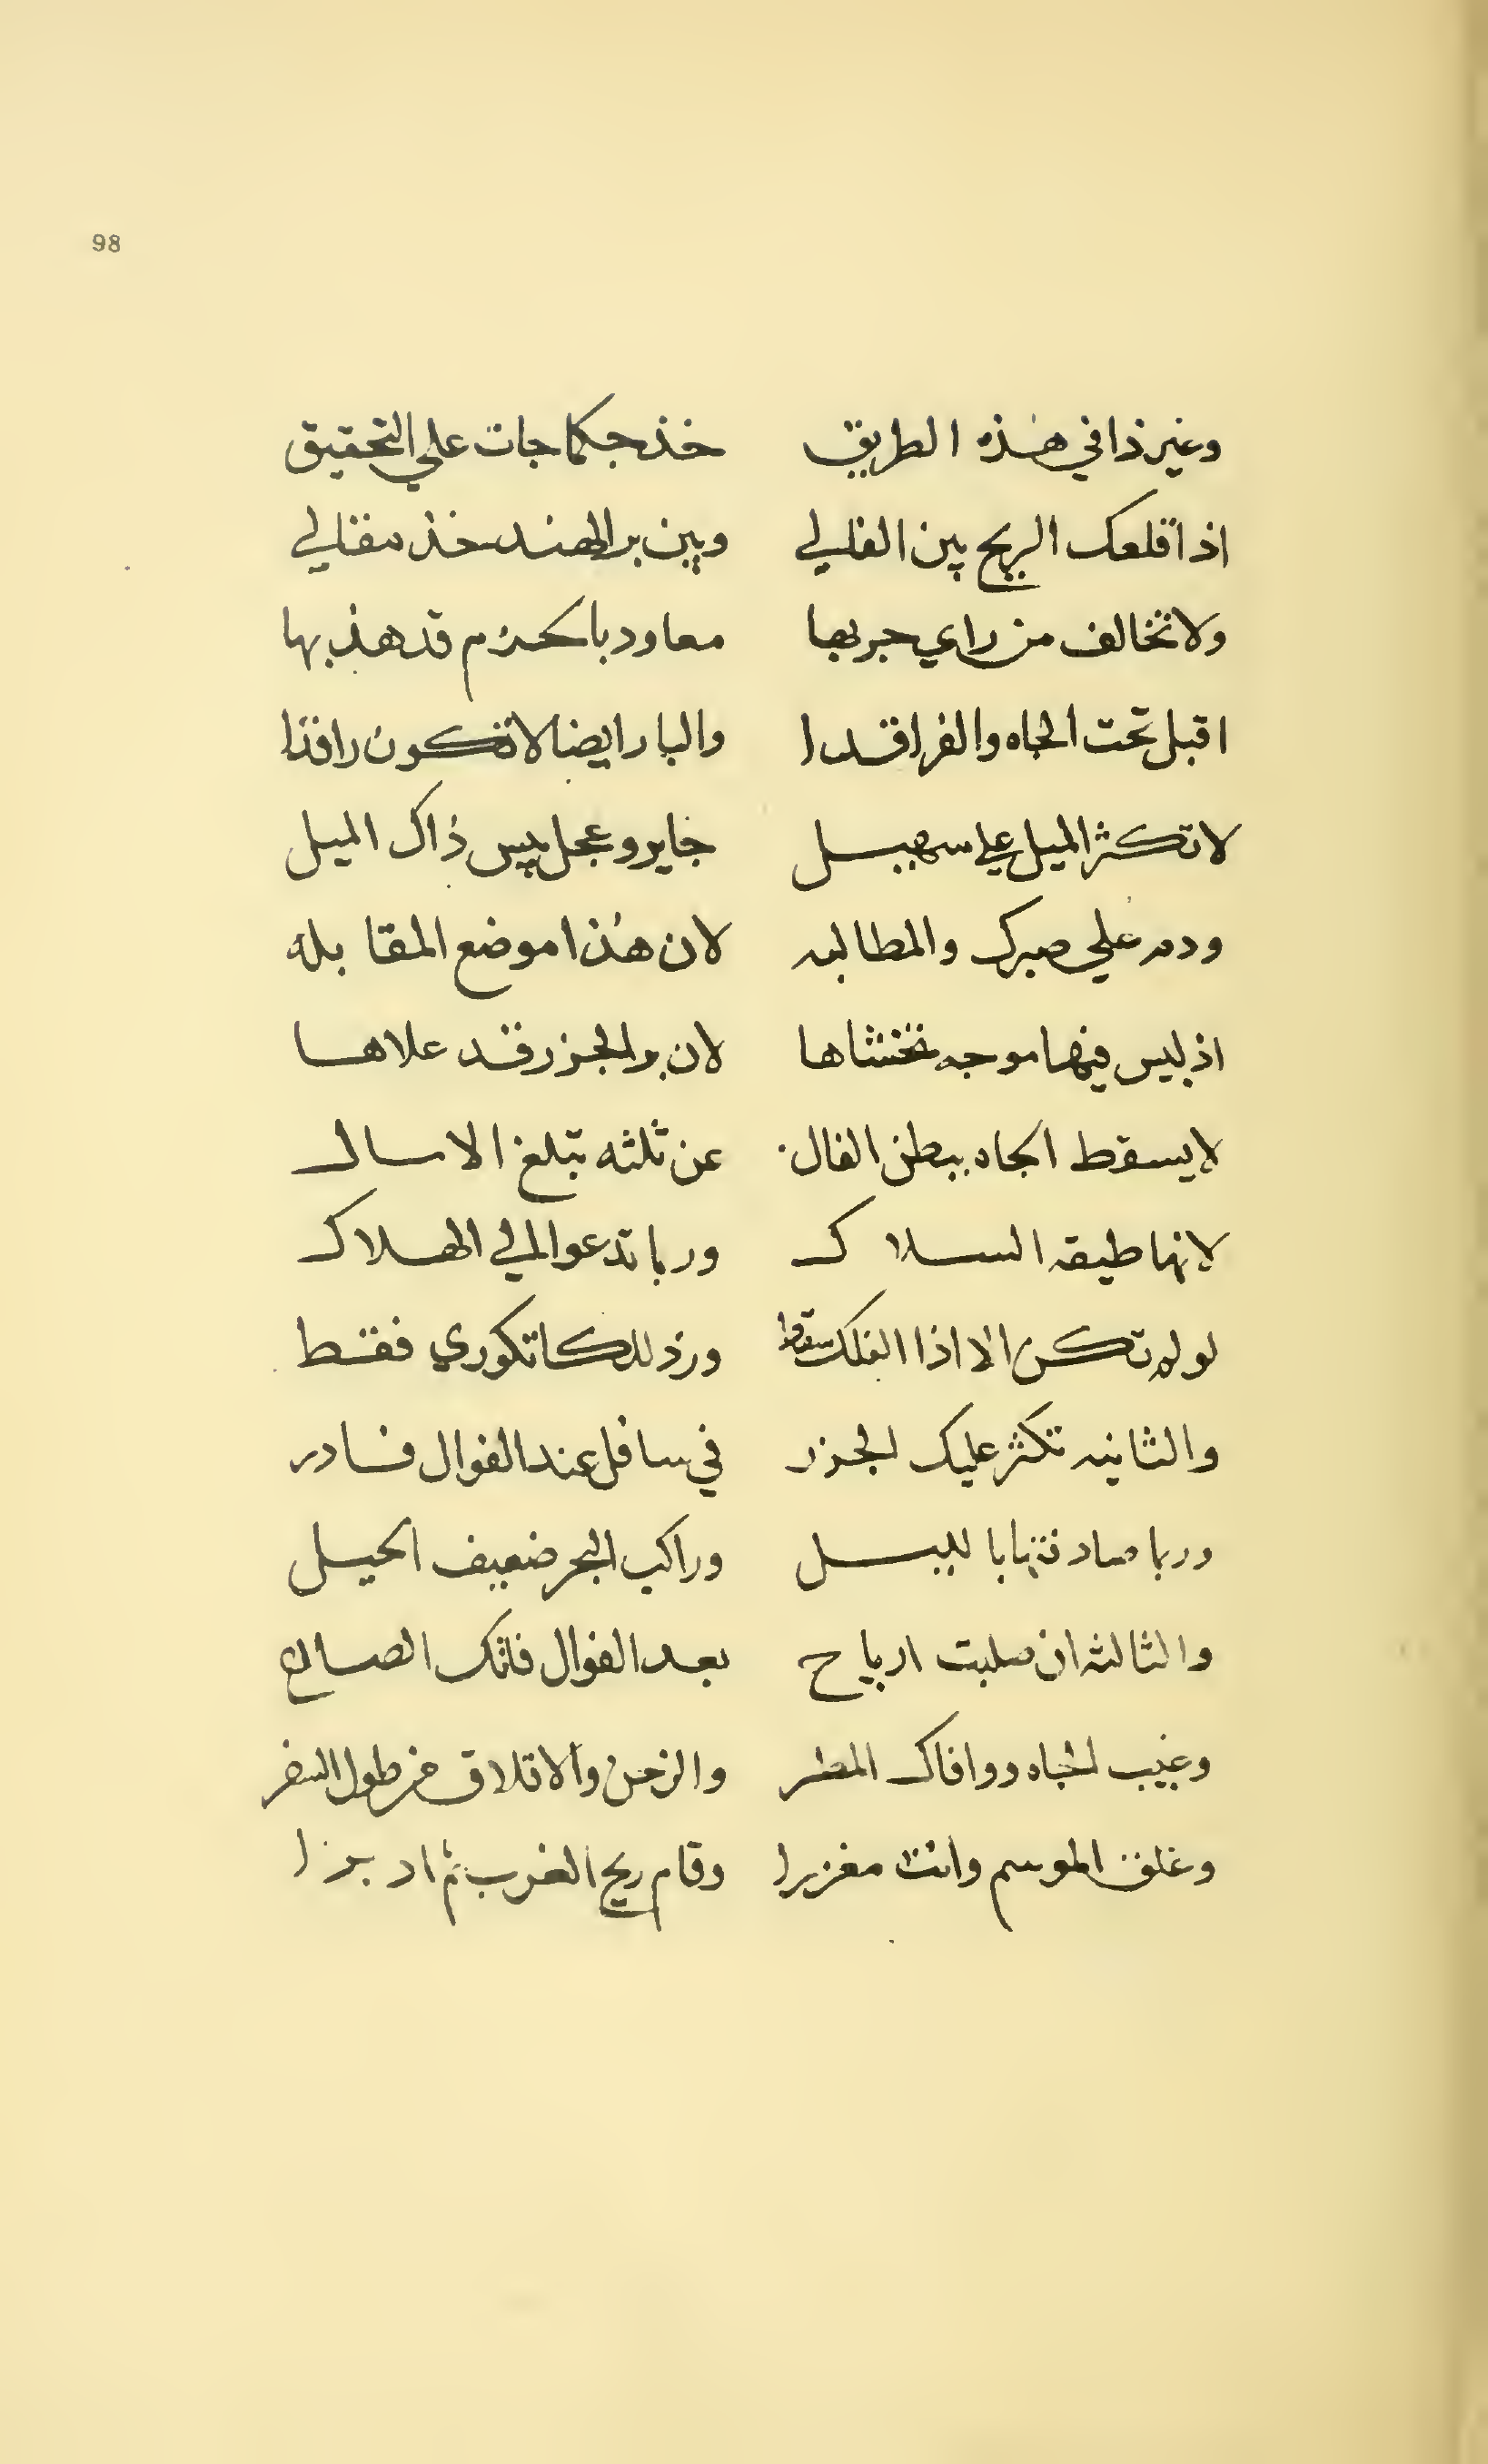 98
وغير ذا في هذه الطريق خذ حكما جات علي التحقيق
اذا قلعك الريح بين الفالي وبين بر الهند خذ مقالي
ولا تخالف من راي جربها معاود بالحزم قد هذبها
اقبل تحت الجاه والفراقدا والبار ايضا لا تكون راقدا
لا تكثر الميل علي سهيل خاير وعجل بيس ذاك الميل
ودم علي صبرك والمطالبه لان هذا موضع المقابله
اذ ليس فيها موجه تخشاها لان بر الجزر قد علاها
لا يسقط الجاه ببطن الفال عن ثلثه تبلغ الامال
لانها طيقه السلاك وربما تدعوا الي الهلاك
لو لم تكن الا اذا الفلك سقط ورد للكاتكوري فقط
والثانيه تكثر عليك الجزر في سافل عند الفوال فادر
وربما صادفتها بالليل وراكب البحر ضعيف الحيل
والثالثه ان صلبت ارياح بعد الفوال فاتك الصلاح
وغيب الجاه ووافاك المطر والزحن والاقلاق من طول السفر
وغلق الموسم وانت مغزرا وقام ريح الغرب ثم ادبرا